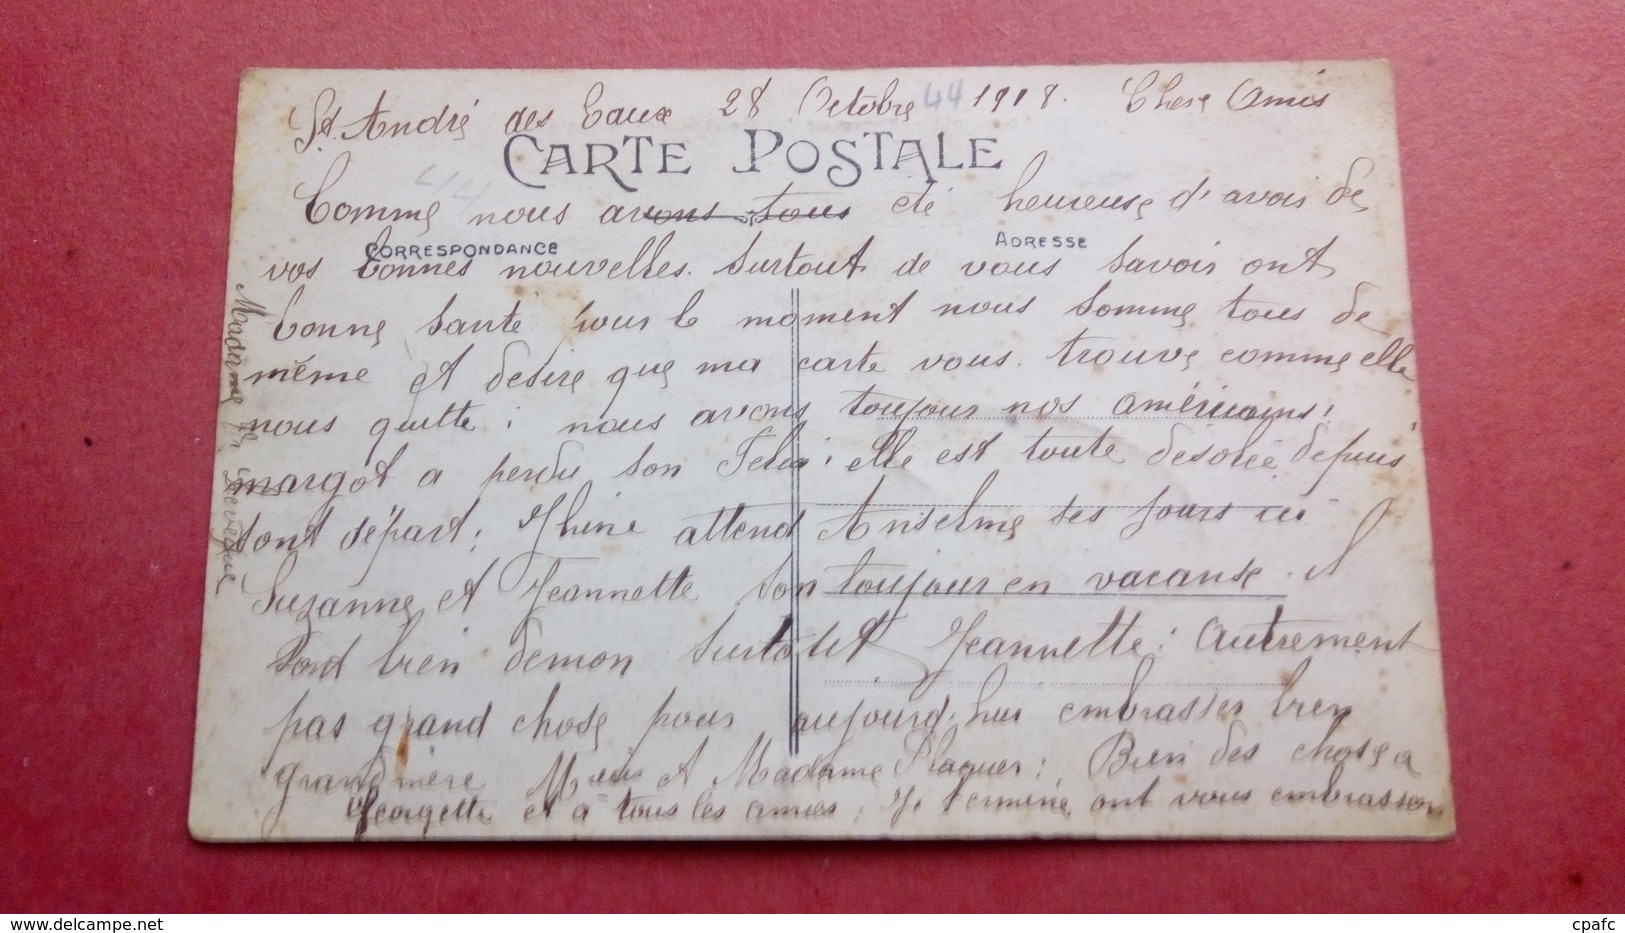 St. André des Eaux 28 Octobre 44 1918. Chere Amis
CARTE POSTALE
Comme nous avons tous été heureuse d'avoir de
CORRESPONDANCE ADRESSE
vos bonnes nouvelles. Surtout de vous savoir ont
bonne santé pour le moment nous somme tous de
même et desire que ma carte vous. trouve comme elle
nous quitte : nous avons toujour nos américains :
margot a perdu son Felix : elle est toute désolée depuis
sont départ ; attend Anselme ses jours ici
Suzanne et Jeannette son toujour en vacanse. il
sont bien demon surtout Jeannette : autrement
pas grand chose pour aujourd'hui embrasser bien
grand mère et Madame : Bien des chose a
Georgette et a tous les amies ; Je termine ont vous embrasson
Madame
44
cpafc